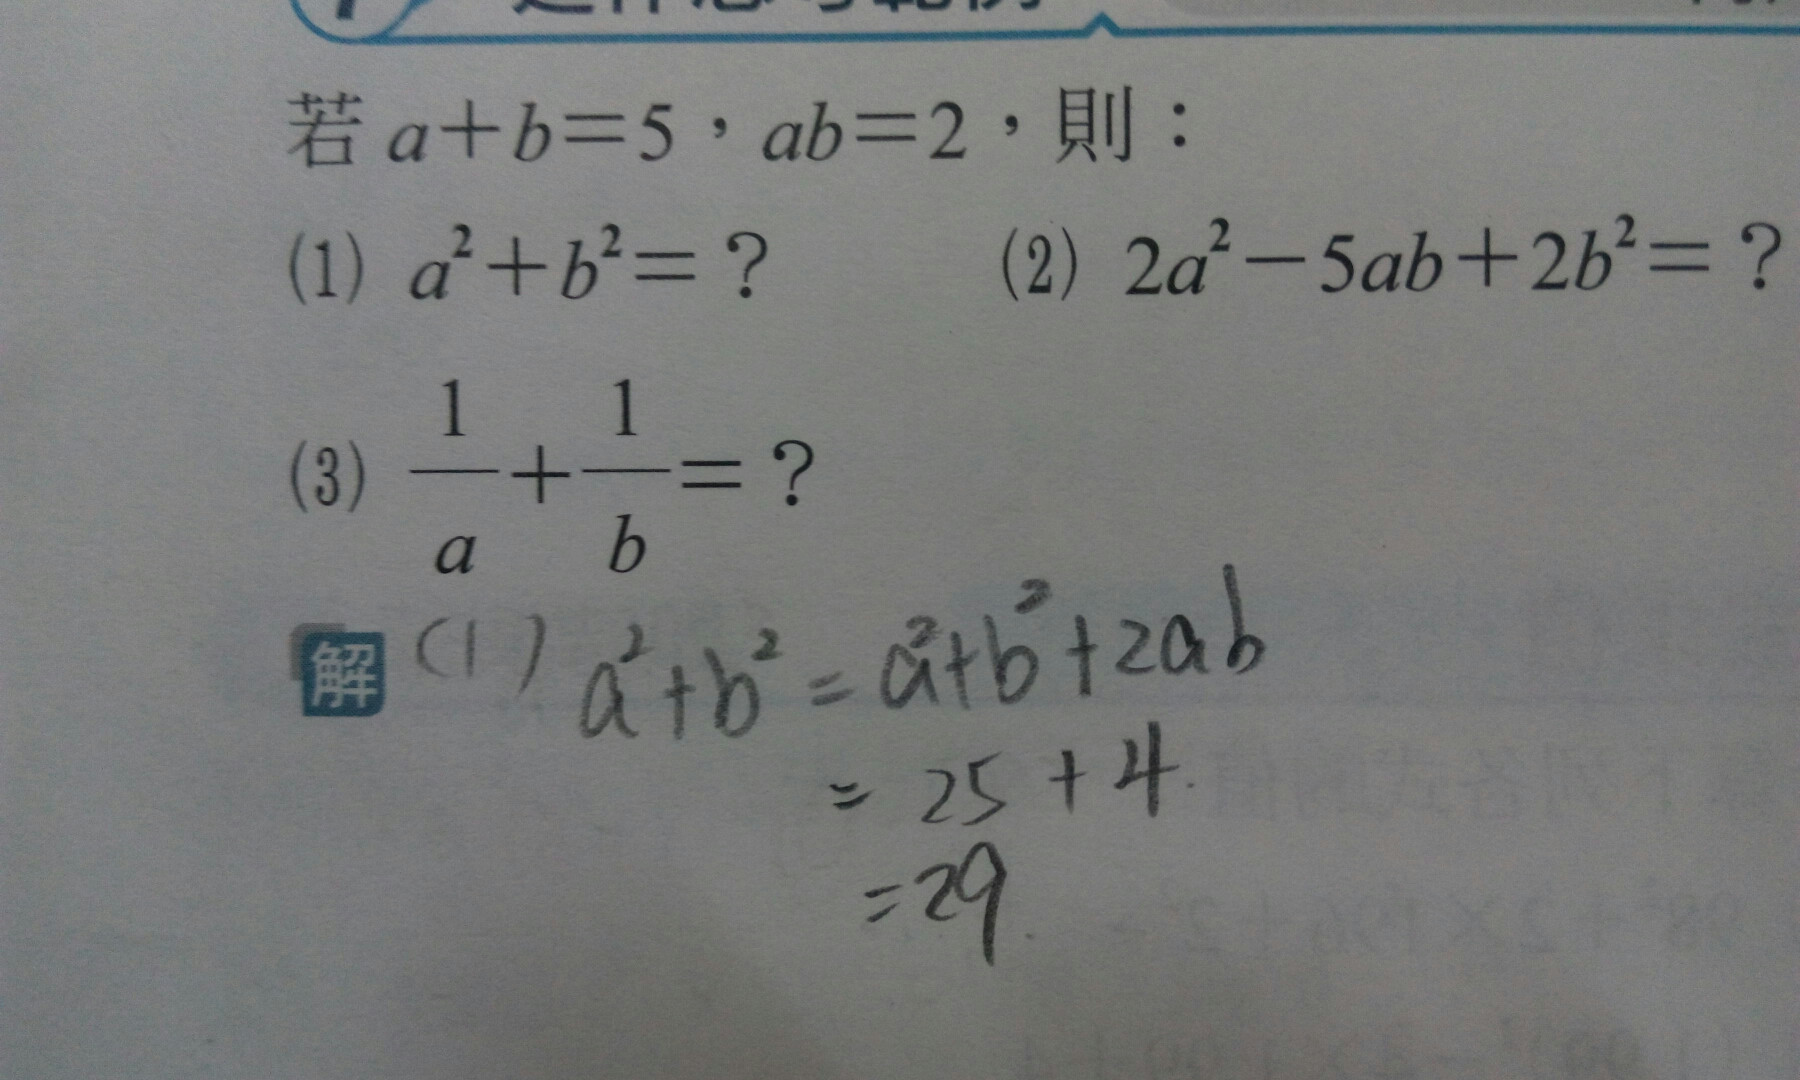 若 a+b=5，ab=2，則：
(1) a²+b²=？ (2) 2a²-5ab+2b²=？
(3) 1/a+1/b=？
解 (1) a²+b² = a²+b²+2ab
= 25+4
=29